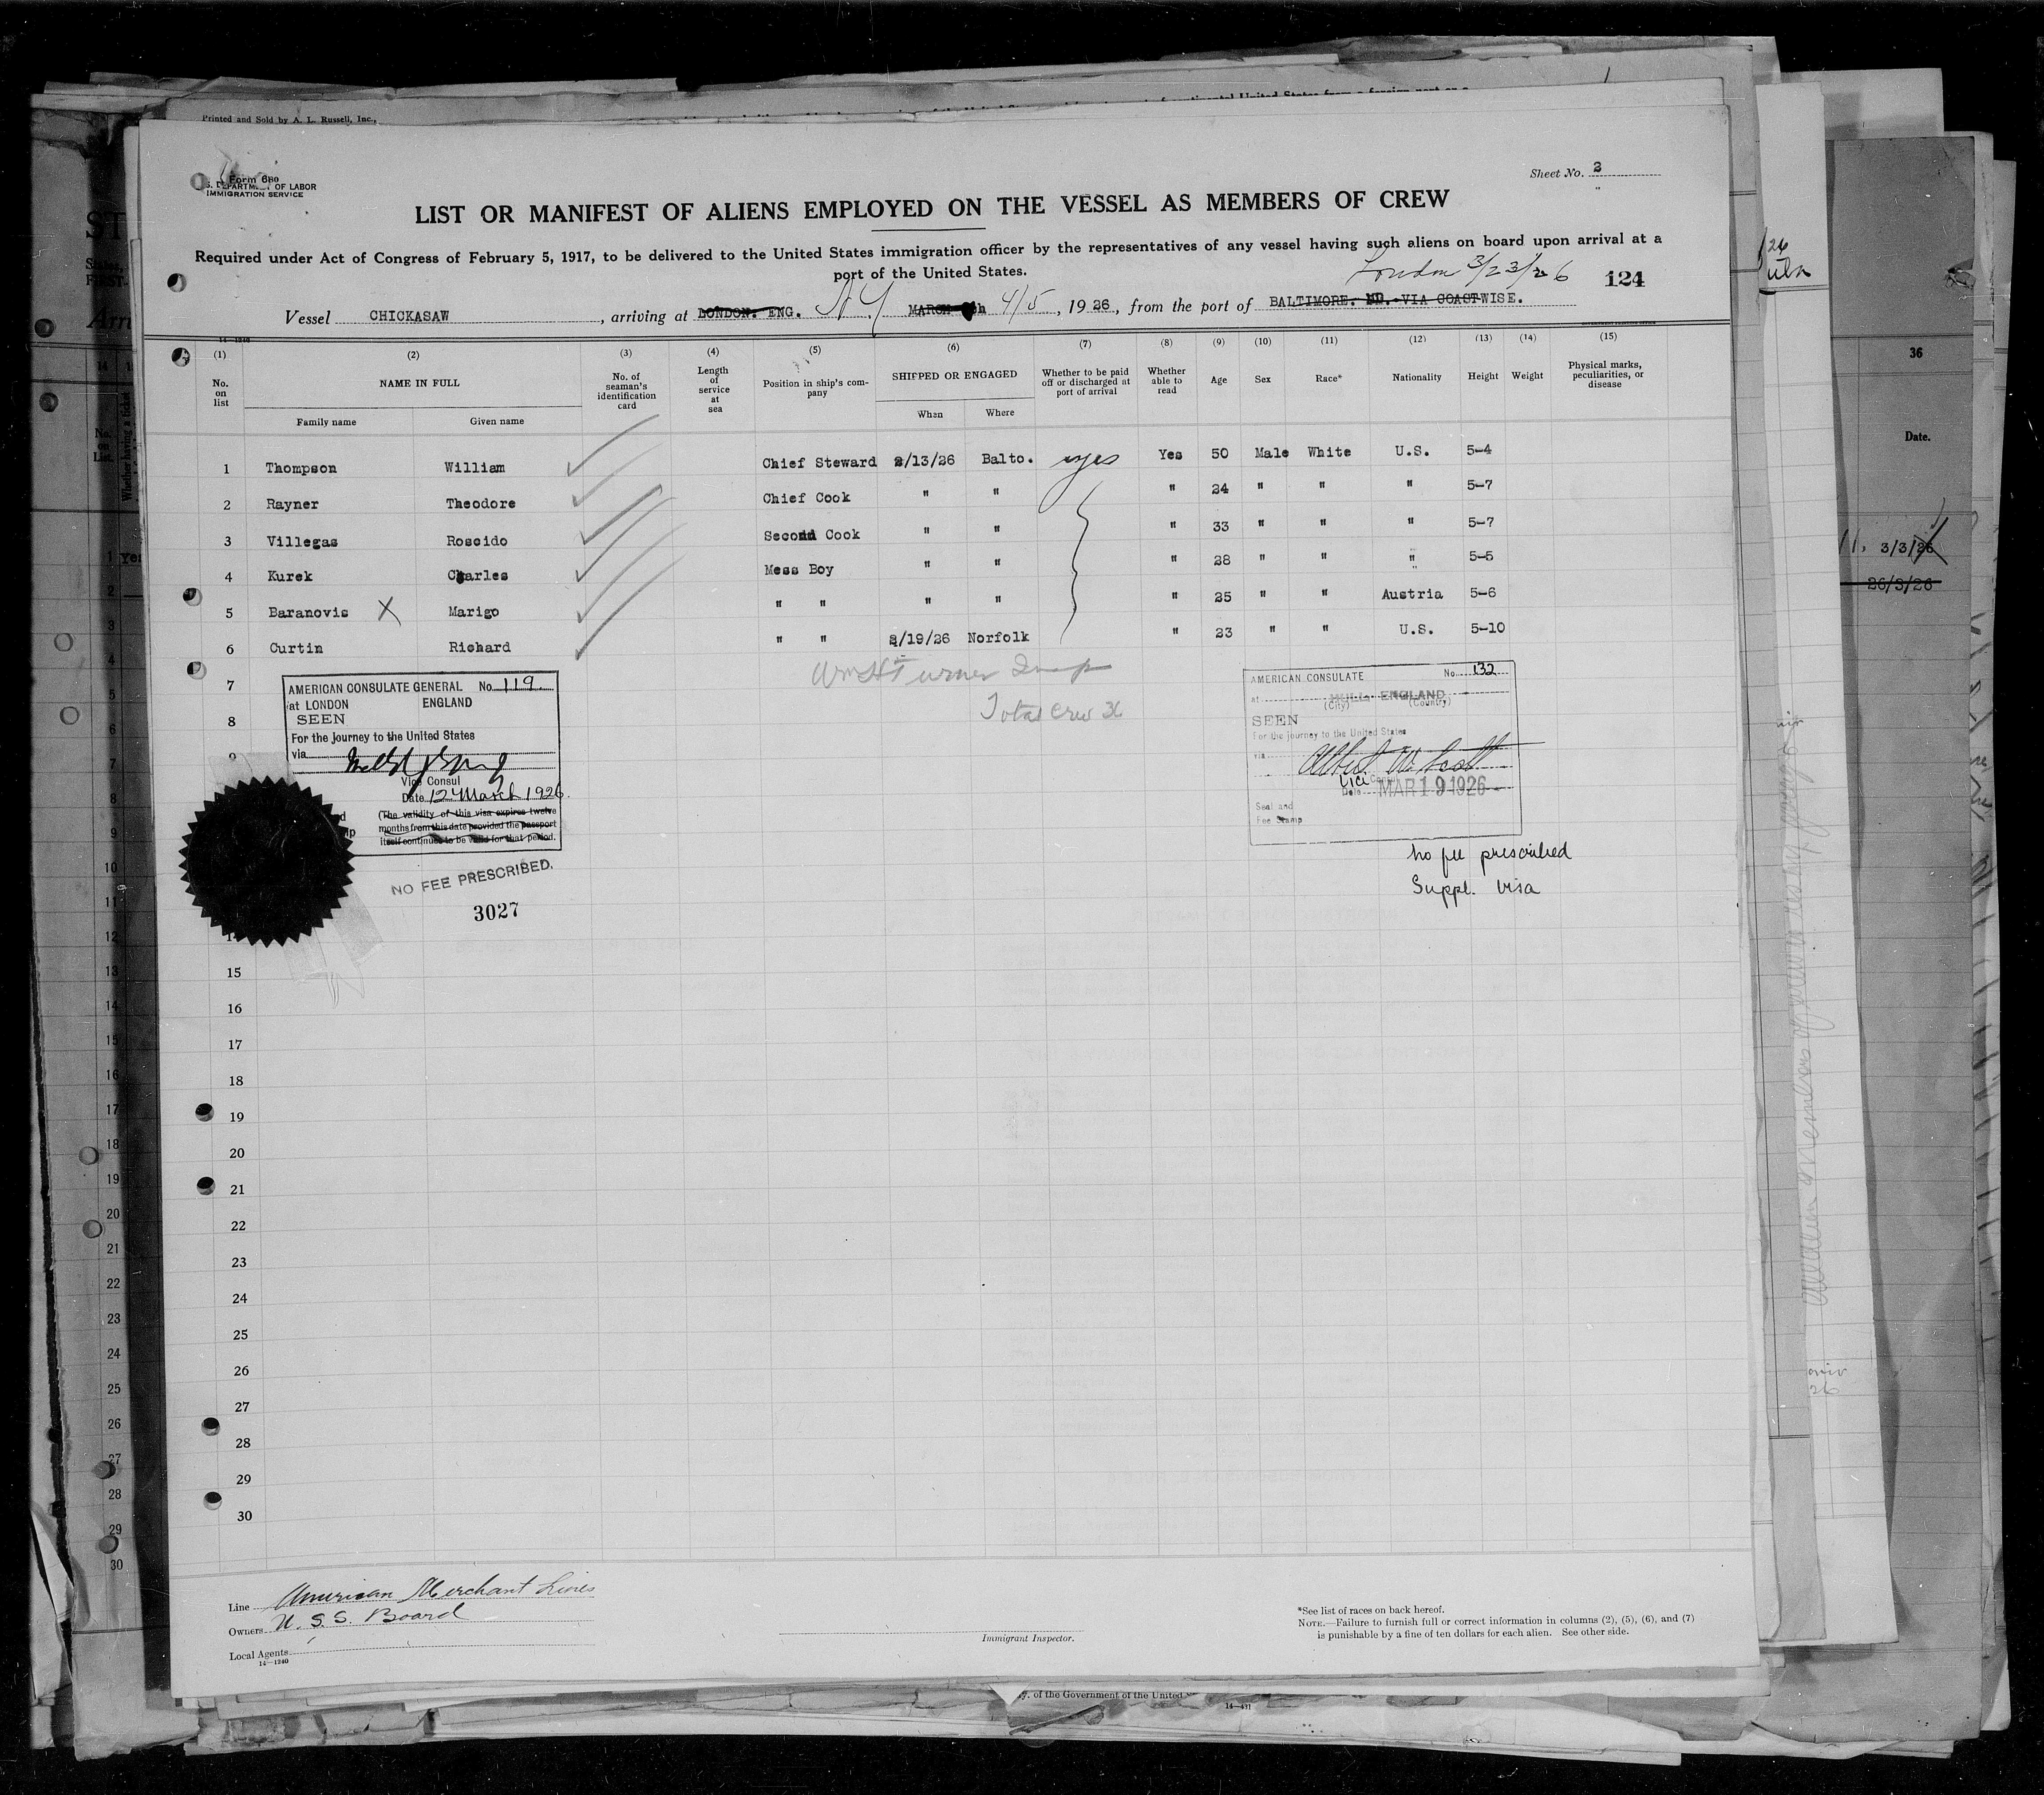 Printed and Sold by A. L. Russell, Inc.,
Form 680
S. DEPARTMENT OF LABOR
IMMIGRATION SERVICE
Sheet No. 2
LIST OR MANIFEST OF ALIENS EMPLOYED ON THE VESSEL AS MEMBERS OF CREW
Required under Act of Congress of February 5, 1917, to be delivered to the United States immigration officer by the representatives of any vessel having such aliens on board upon arrival at a
port of the United States.
London 3/23/26 124
Vessel CHICKASAW, arriving at LONDON. ENG. N.Y. MARCH 4/5, 1926, from the port of BALTIMORE. MD. VIA COASTWISE.
(1) (2) (3) (4) (5) (6) (7) (8) (9) (10) (11) (12) (13) (14) (15)
No. on list NAME IN FULL No. of seaman's identification card Length of service at sea Position in ship's company SHIPPED OR ENGAGED Whether to be paid off or discharged at port of arrival Whether able to read Age Sex Race* Nationality Height Weight Physical marks, peculiarities, or disease
Family name Given name When Where
1 Thompson William Chief Steward 2/13/26 Balto. yes Yes 50 Male White U.S. 5-4
2 Rayner Theodore Chief Cook " " " 24 " " " 5-7
3 Villegas Roscido Second Cook " " " 33 " " " 5-7
4 Kurek Charles Mess Boy " " " 28 " " " 5-5
5 Baranovis X Marigo " " " " " 25 " " Austria 5-6
6 Curtin Richard " " 2/19/26 Norfolk " 23 " " U.S. 5-10
7
8
9
Wm H Turner Insp
Total Crew 36
AMERICAN CONSULATE GENERAL No. 119.
at LONDON ENGLAND
SEEN
For the journey to the United States
via
Vice Consul
Date 12 March 1926.
(The validity of this visa expires twelve
months from this date provided the passport
itself continues to be valid for that period.
NO FEE PRESCRIBED.
3027
AMERICAN CONSULATE No. 132
at HULL ENGLAND
(City) (Country)
SEEN
For the journey to the United States
via
Albert W. Scott
Vice Consul
Date MAR 19 1926
Seal and
Fee Stamp
No fee prescribed
Suppl. visa
14
15
16
17
18
19
20
21
22
23
24
25
26
27
28
29
30
Line American Merchant Lines
Owners U. S. S. Board
Local Agents
14—1240
Immigrant Inspector.
*See list of races on back hereof.
NOTE.—Failure to furnish full or correct information in columns (2), (5), (6), and (7)
is punishable by a fine of ten dollars for each alien. See other side.
36
Date.
3/3/26
26/3/26
y. of the Government of the United
14—431